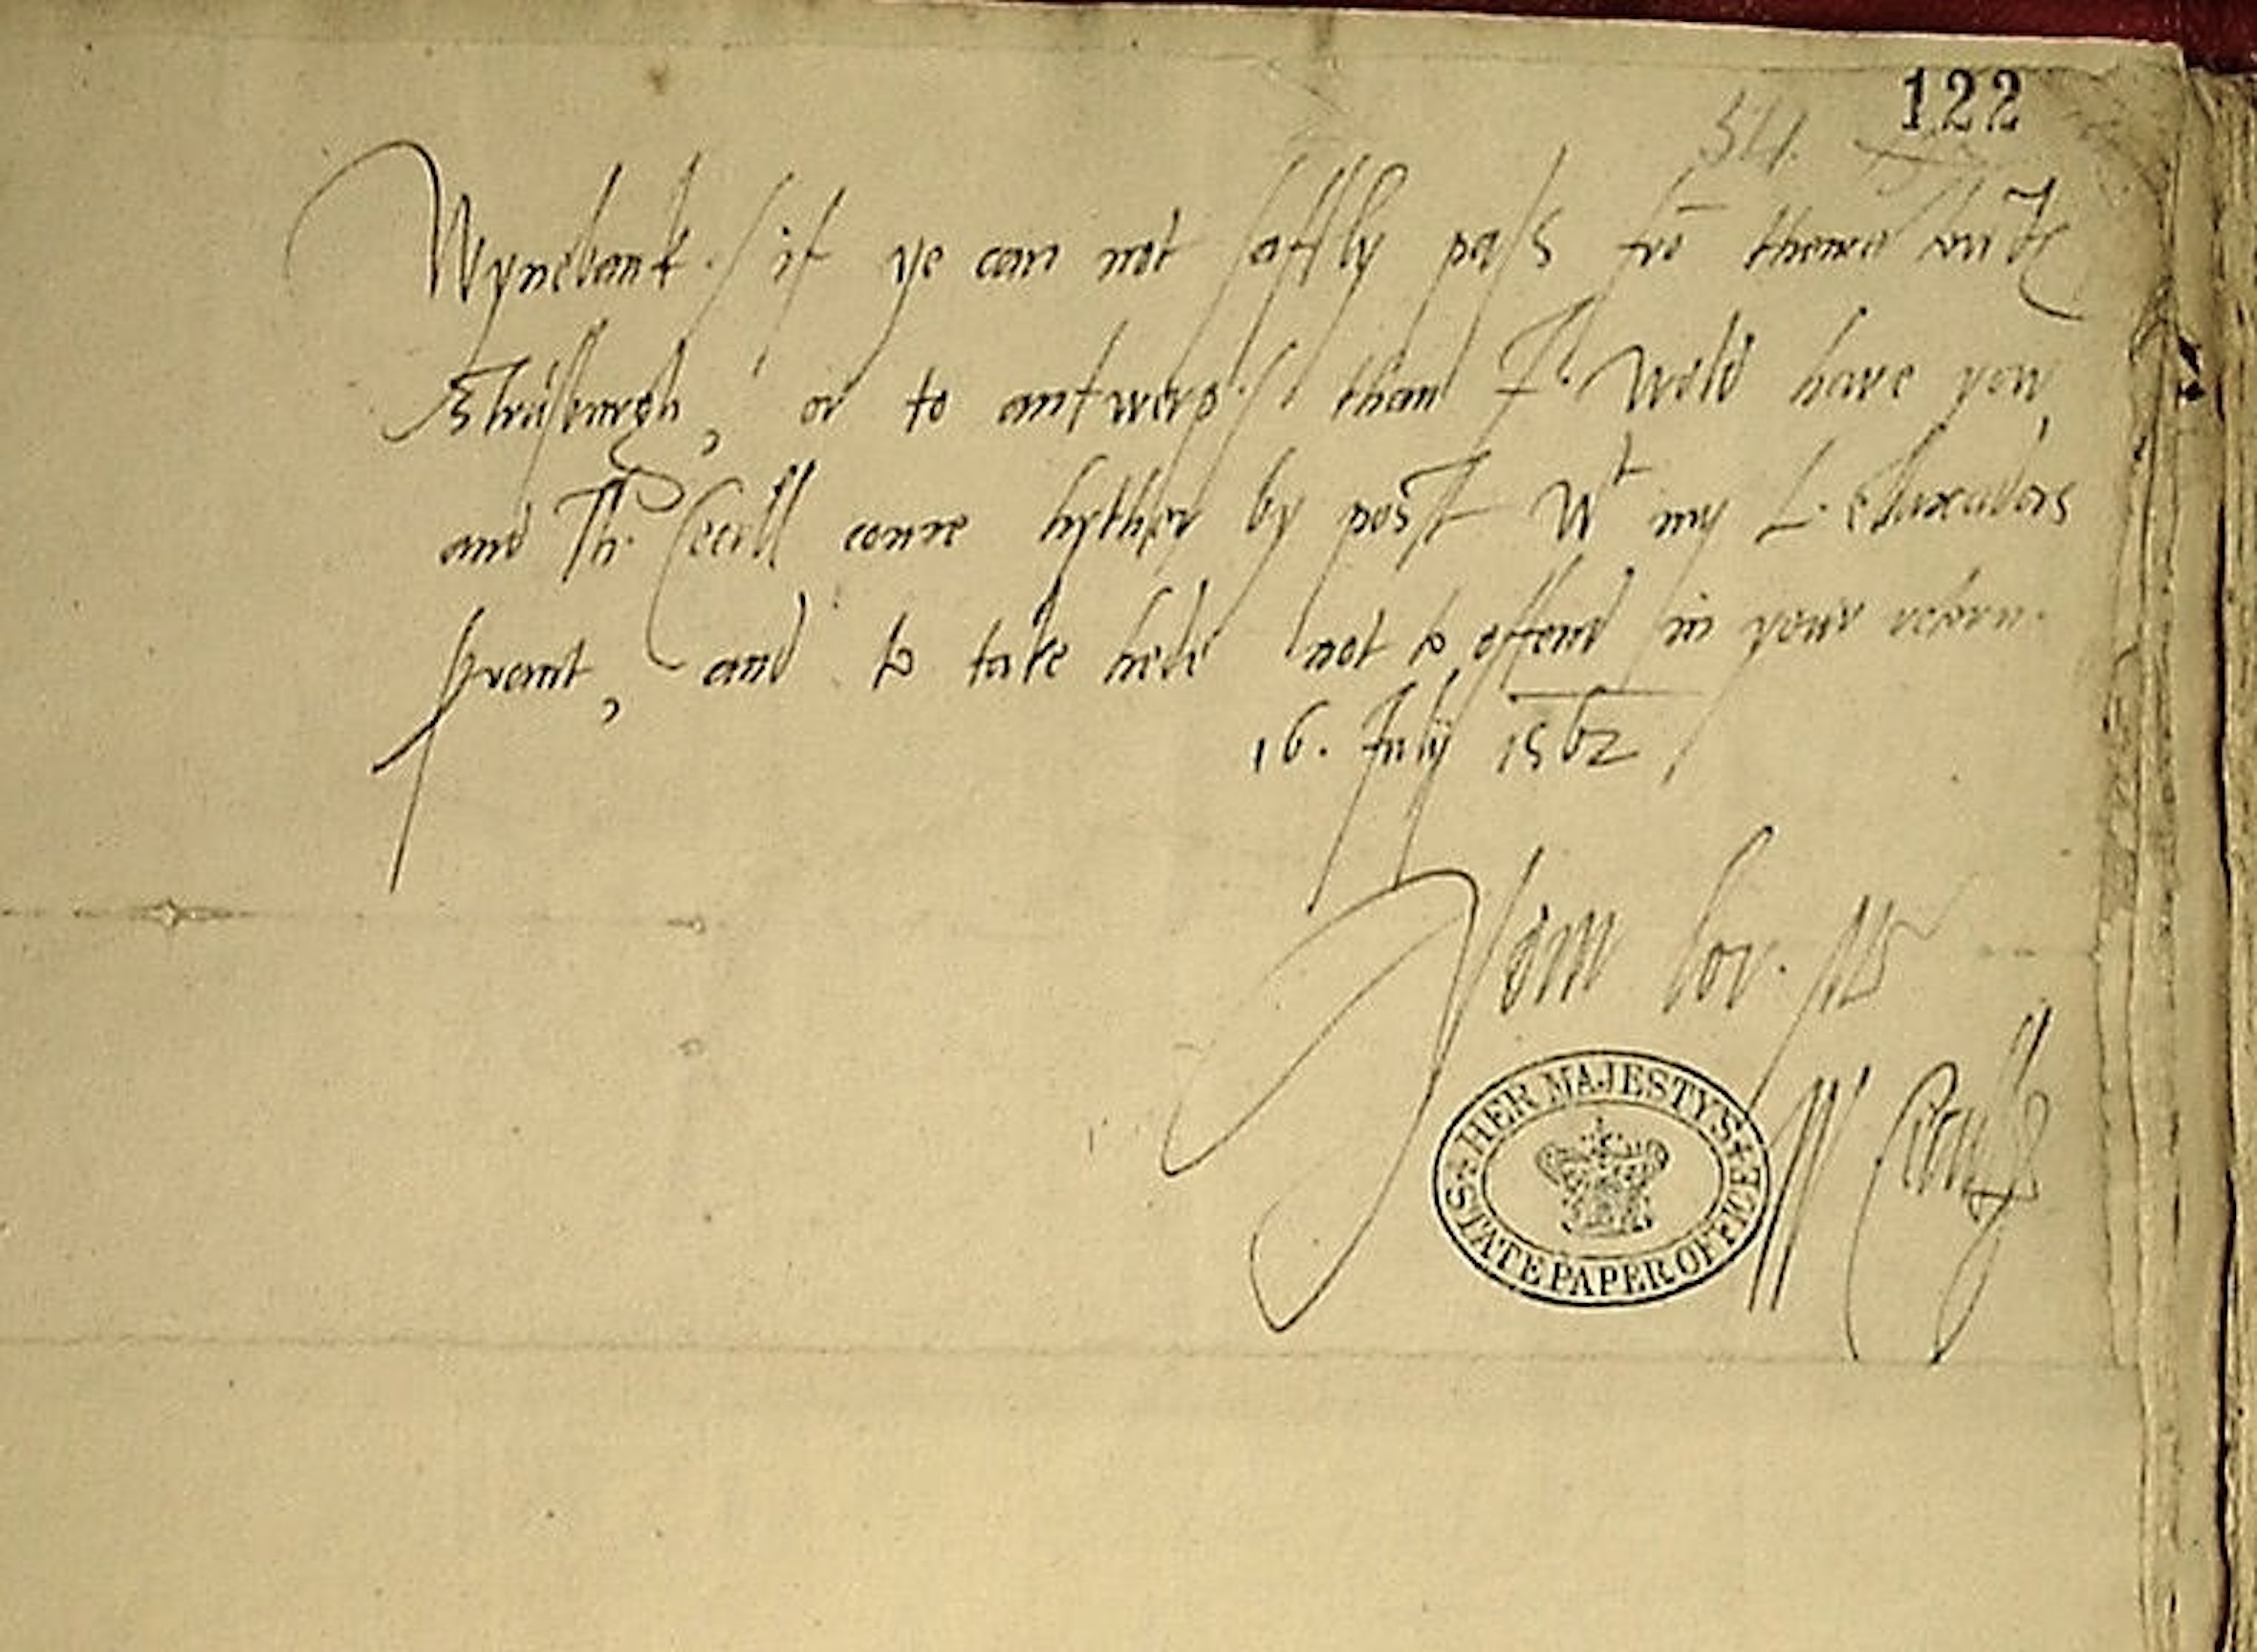 122
54.
Wyndebank. / if ye can not saffly pass frõ thence
Strasburgh, or to antwerp. / than I wold have yow,
and Th. Cecill come hyther by post wt my L. Embaxadors
srvant, and to take hede not to offend in your retorn.
16. July 1562
Your lov. mr
W Cecill
HER MAJESTY'S STATE PAPER OFFICE